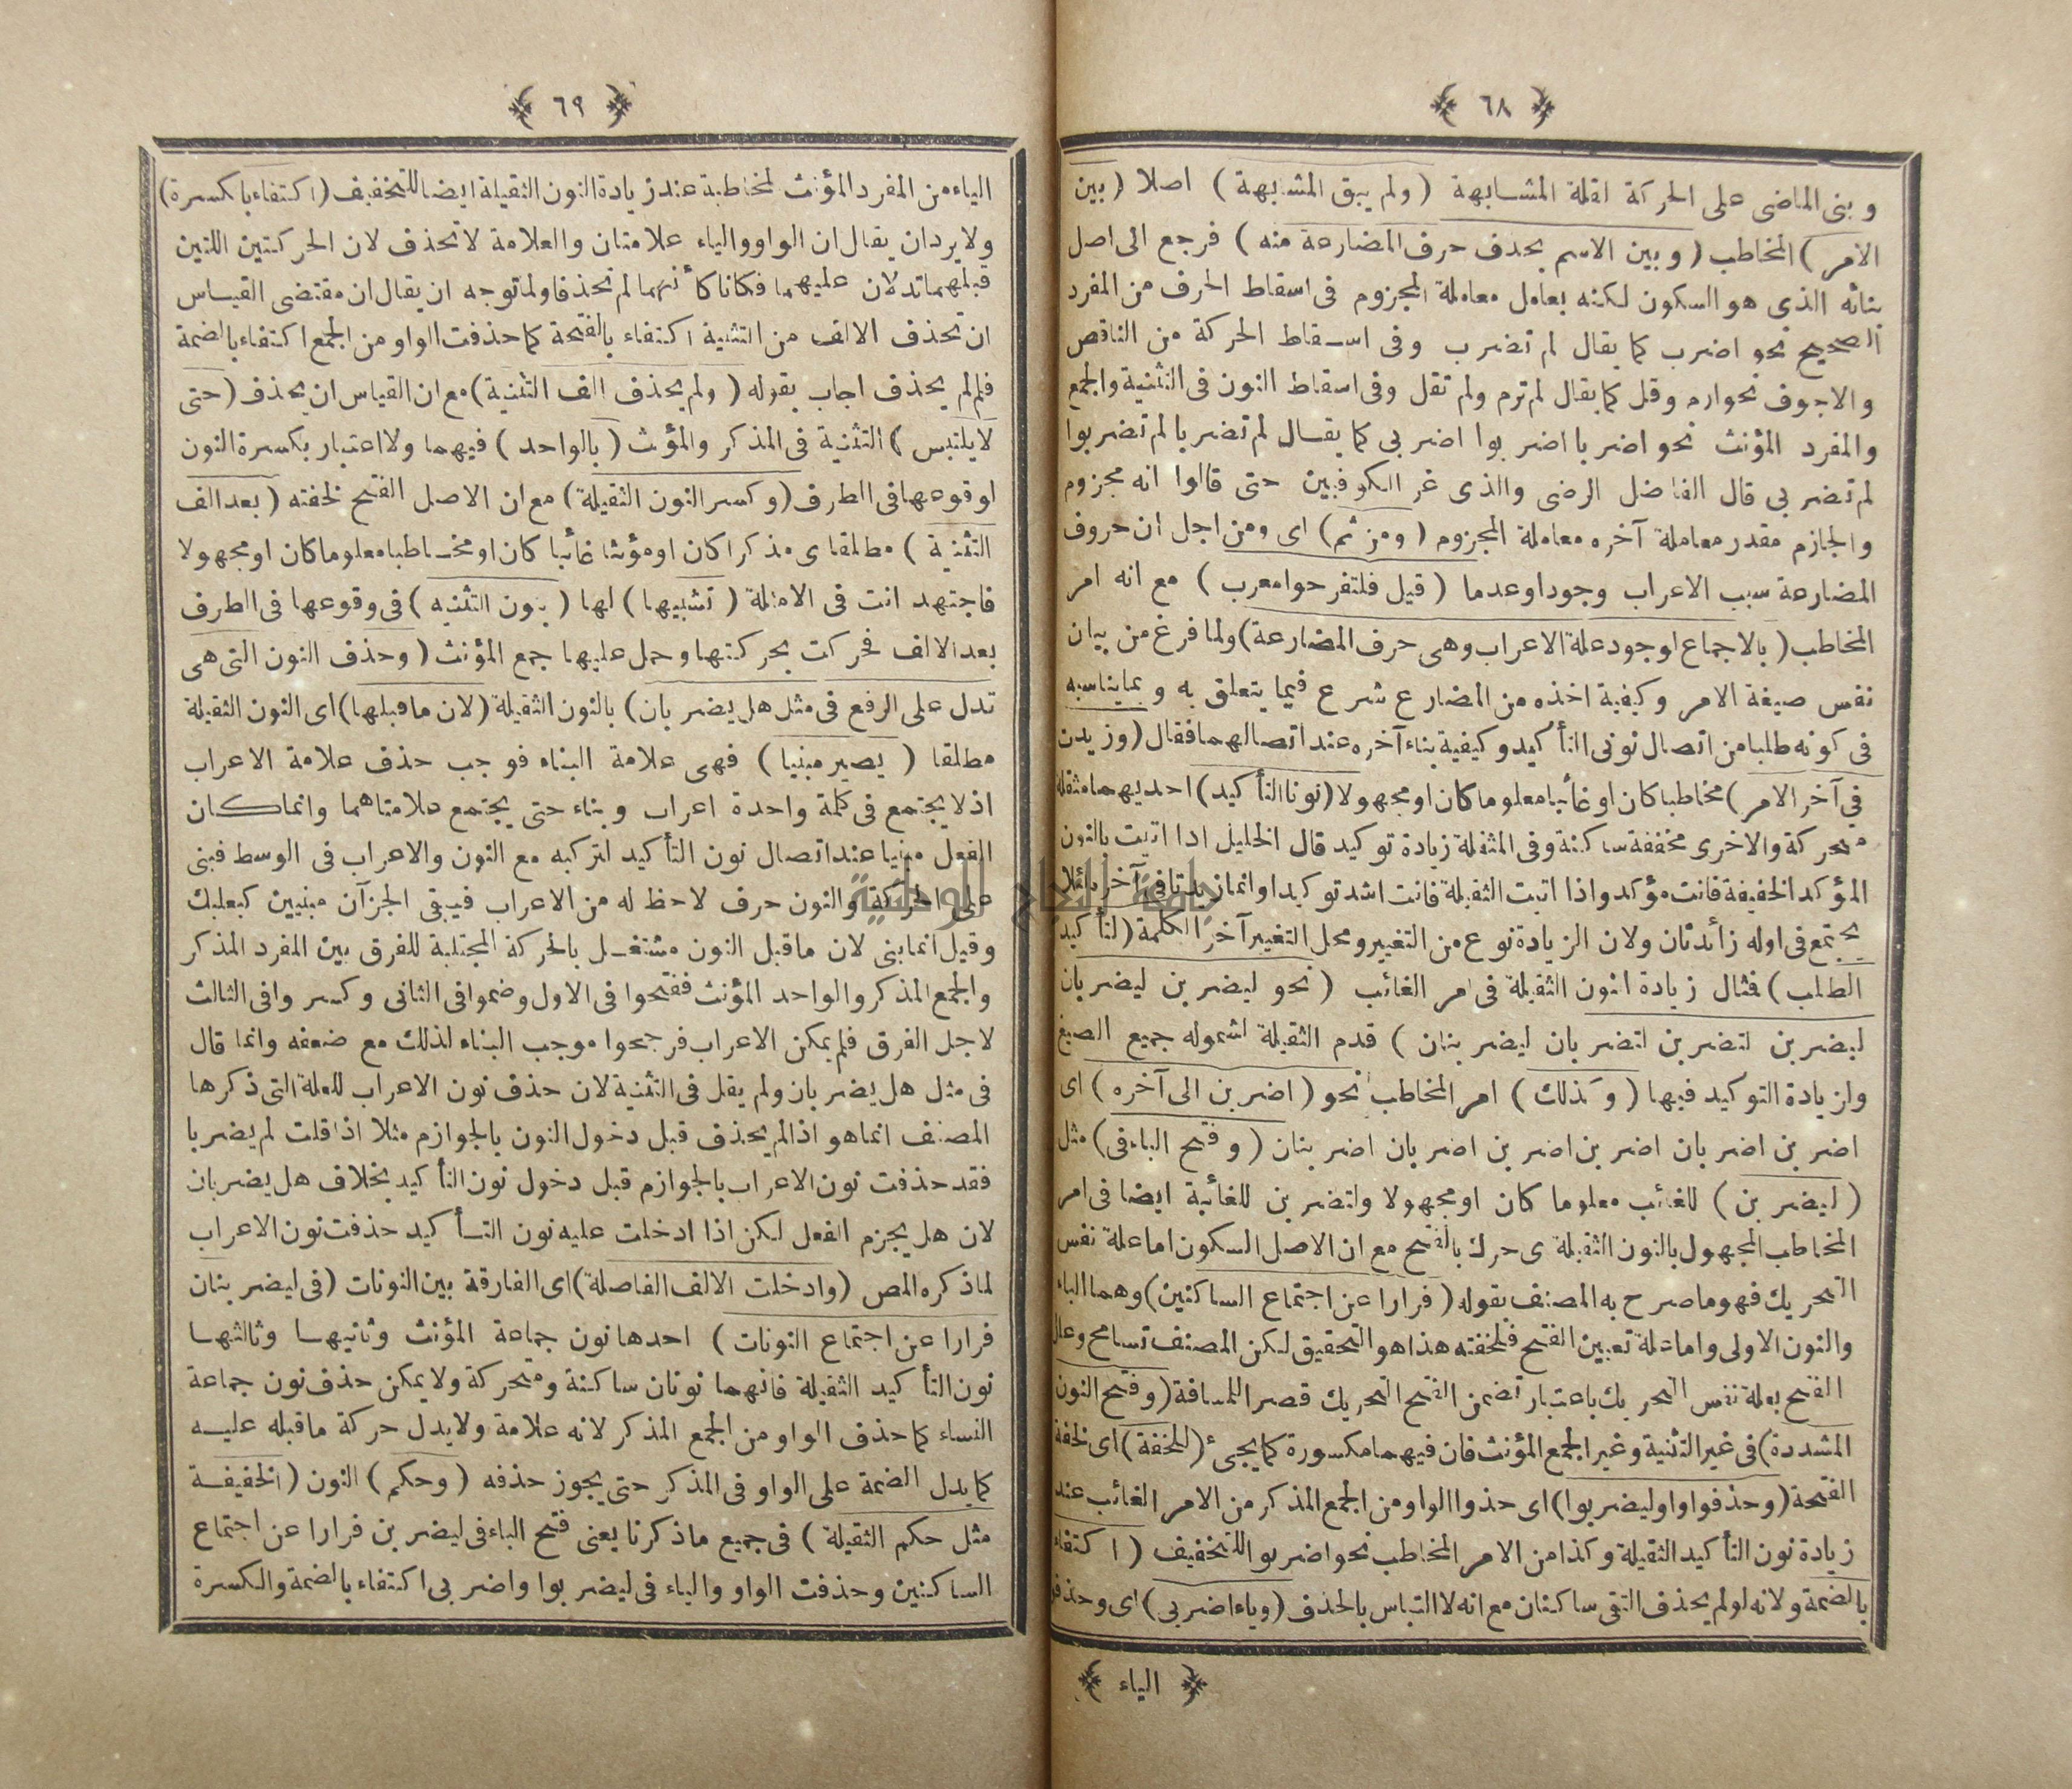 ﴿ ٦٨ ﴾
وبنى الماضى على الحركة لقلة المشابهة ( ولم يبق المشابهة ) اصلا ( بين
الامر ) المخاطب ( وبين الاسم بحذف حرف المضارعة منه ) فرجع الى اصل
بنائه الذى هو السكون لكنه يعامل معاملة المجزوم فى اسقاط الحرف من المفرد
الصحيح نحو اضرب كما يقال لم تضرب وفى اسقاط الحركة من الناقص
والاجوف نحو ارم وقل كما يقال لم ترم ولم تقل وفى اسقاط النون فى التثنية والجمع
والمفرد المؤنث نحو اضربا اضربوا اضربى كما يقال لم تضربا لم تضربوا
لم تضربى قال الفاضل الرضى والذى غر الكوفيين حتى قالوا انه مجزوم
والجازم مقدر معاملة آخره معاملة المجزوم ( ومن ثم ) اى ومن اجل ان حروف
المضارعة سبب الاعراب وجودا وعدما ( قيل فلتفرحوا معرب ) مع انه امر
المخاطب ( بالاجماع لوجود علة الاعراب وهى حرف المضارعة ) ولما فرغ من بيان
نفس صيغة الامر وكيفية اخذه من المضارع شرع فيما يتعلق به وبما يناسبه
فى كونه طلبا من اتصال نونى التأكيد وكيفية بناء آخره عند اتصالهما فقال ( وزيدت
فى آخر الامر ) مخاطبا كان او غائبا معلوما كان او مجهولا ( نونا التأكيد ) احديهما مثقلة
متحركة والاخرى مخففة ساكنة وفى المثقلة زيادة توكيد قال الخليل اذا اتيت بالنون
المؤكد الخفيفة فانت مؤكد واذا اتيت الثقيلة فانت اشد توكيدا وانما زيدتا فى آخره لئلا
يجتمع فى اوله زائدتان ولان الزيادة نوع من التغيير ومحل التغيير آخر الكلمة ( لتأكيد
الطلب ) فمثال زيادة النون الثقيلة فى امر الغائب ( نحو ليضربن ليضربان
ليضربن لتضربن لتضربان ليضربنان ) قدم الثقيلة لشموله جميع الصيغ
ولزيادة التوكيد فيها ( وكذلك ) امر المخاطب نحو ( اضربن الى آخره ) اى
اضربن اضربان اضربن اضربن اضربان اضربنان ( وفتح الباء فى ) مثل
( ليضربن ) للغائب معلوما كان او مجهولا ولتضربن للغائبة ايضا فى امر
المخاطب المجهول بالنون الثقيلة اى حرك بالفتح مع ان الاصل السكون اما علة نفس
التحريك فهو ما صرح به المصنف بقوله ( فرارا عن اجتماع الساكنين ) وهما الباء
والنون الاولى واما علة تعيين الفتح فلخفته هذا هو التحقيق لكن المصنف تسامح وعلل
الفتح بعلة نفس التحريك باعتبار تضمن الفتح التحريك قصرا للمسافة ( وفتح النون
المشددة ) فى غير التثنية وغير الجمع المؤنث فان فيهما مكسورة كما يجىء ( للخفة ) اى لخفة
الفتحة ( وحذف واو ليضربوا ) اى حذوا الواو من الجمع المذكر من الامر الغائب عند
زيادة نون التأكيد الثقيلة وكذا من الامر المخاطب نحو اضربوا للتخفيف ( اكتفاء
بالضمة ولانه لو لم يحذف التقى ساكنان مع انه لا التباس بالحذف ( وياء اضربى ) اى وحذف
﴿ الياء ﴾
﴿ ٦٩ ﴾
الياء من المفرد المؤنث لمخاطبة عند زيادة النون الثقيلة ايضا للتخفيف ( اكتفاء بالكسرة )
ولا يرد ان يقال ان الواو والياء علامتان والعلامة لا تحذف لان الحركتين اللتين
قبلهما تدلان عليهما فكانا كأنهما لم تحذفا ولما توجه ان يقال ان مقتضى القياس
ان تحذف الالف من التثنية اكتفاء بالفتحة كما حذفت الواو من الجمع اكتفاء بالضمة
فلم لم يحذف اجاب بقوله ( ولم يحذف الف التثنية ) مع ان القياس ان يحذف ( حتى
لا يلتبس ) التثنية فى المذكر والمؤنث ( بالواحد ) فيهما ولا اعتبار بكسرة النون
لوقوعها فى الطرف ( وكسر النون الثقيلة ) مع ان الاصل الفتح لخفته ( بعد الف
التثنية ) مطلقا اى مذكرا كان او مؤنثا غائبا كان او مخاطبا معلوما كان او مجهولا
فاجتهد انت فى الامثلة ( تشبيها ) لها ( بنون التثنيه ) فى وقوعها فى الطرف
بعد الالف فحركت بحركتها وحمل عليها جمع المؤنث ( وحذف النون التى هى
تدل على الرفع فى مثل هل يضربان ) بالنون الثقيلة ( لان ما قبلها ) اى النون الثقيلة
مطلقا ( يصير مبنيا ) فهى علامة البناء فوجب حذف علامة الاعراب
اذ لا يجتمع فى كلمة واحدة اعراب وبناء حتى يجتمع علامتاهما وانما كان
الفعل مبنيا عند اتصال نون التأكيد لتركبه مع النون والاعراب فى الوسط فبنى
على الحركة والنون حرف لا حظ له من الاعراب فيبقى الجزآن مبنيين كبعلبك
وقيل انما بنى لان ما قبل النون مشتغل بالحركة المجتلبة للفرق بين المفرد المذكر
والجمع المذكر والواحد المؤنث ففتحوا فى الاول وضموا فى الثانى وكسروا فى الثالث
لاجل الفرق فلم يمكن الاعراب فرجحوا موجب البناء لذلك مع ضعفه وانما قال
فى مثل هل يضربان ولم يقل فى التثنية لان حذف نون الاعراب للعلة التى ذكرها
المصنف انما هو اذا لم يحذف قبل دخول النون بالجوازم مثلا اذا قلت لم يضربا
فقد حذفت نون الاعراب بالجوازم قبل دخول نون التأكيد بخلاف هل يضربان
لان هل يجزم الفعل لكن اذا ادخلت عليه نون التأكيد حذفت نون الاعراب
لما ذكره المص ( وادخلت الالف الفاصلة ) اى الفارقة بين النونات ( فى ليضربنان
فرارا عن اجتماع النونات ) احدها نون جماعة المؤنث وثانيها وثالثها
نون التأكيد الثقيلة فانهما نونان ساكنة ومتحركة ولا يمكن حذف نون جماعة
النساء كما حذف الواو من الجمع المذكر لانه علامة ولا يدل حركة ما قبله عليه
كما يدل الضمة على الواو فى المذكر حتى يجوز حذفه ( وحكم ) النون ( الخفيفة
مثل حكم الثقيلة ) فى جميع ما ذكرنا يعنى فتح الباء فى ليضربن فرارا عن اجتماع
الساكنين وحذفت الواو والياء فى ليضربوا واضربى اكتفاء بالضمة والكسرة